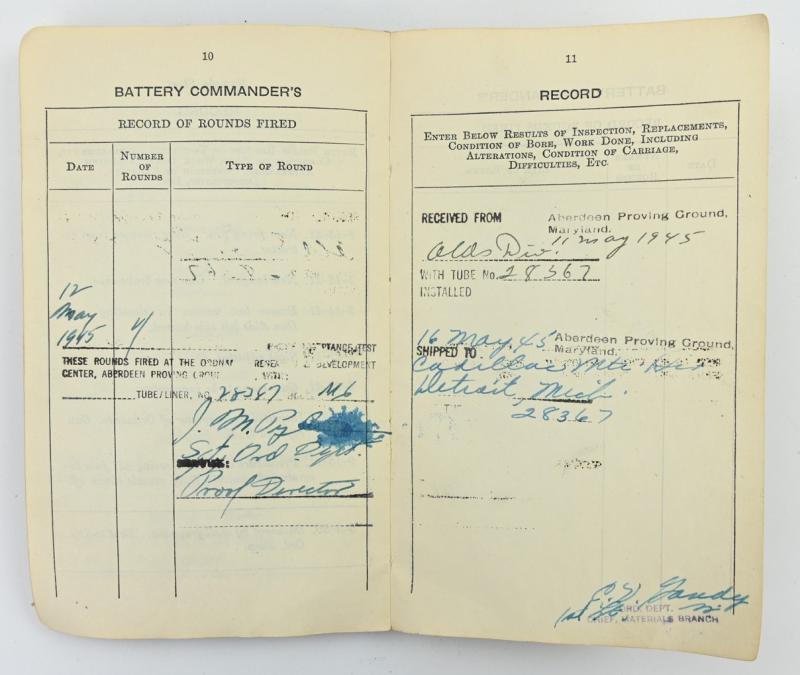 10
BATTERY COMMANDER'S
RECORD OF ROUNDS FIRED
DATE
NUMBER OF ROUNDS
TYPE OF ROUND
12
May
1945
THESE ROUNDS FIRED AT THE
CENTER, ABERDEEN PROVING
DEVELOPMENT
TUBE/LINER, NO. 28367 M6
J. M.
Sgt. Ord. Dept.
Proof Director
11
RECORD
ENTER BELOW RESULTS OF INSPECTION, REPLACEMENTS,
CONDITION OF BORE, WORK DONE, INCLUDING
ALTERATIONS, CONDITION OF CARRIAGE,
DIFFICULTIES, ETC.
RECEIVED FROM Aberdeen Proving Ground,
Maryland.
Olds Div. 11 May 1945
WITH TUBE No. 28367
INSTALLED
16 May, 45 Aberdeen Proving Ground,
SHIPPED TO Maryland.
Cadillac
Detroit, Mich.
28367
1st Lt. ORD. DEPT.
CHIEF, MATERIALS BRANCH